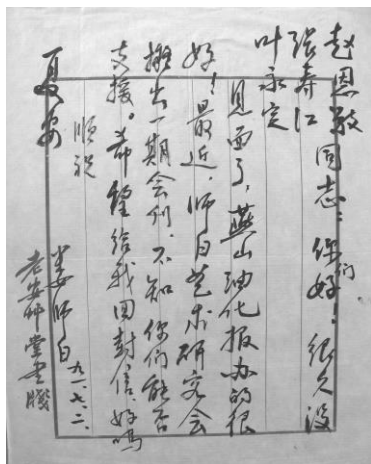 赵恩敬
张寿江
叶永定
同志：你们好！很久没
见面了，燕山油化报办的很
好！最近，师白艺术研究会
搬出一期会刊，不知你们能否
支援。希望给我回封信，好吗
顺祝
夏安
娄师白
九一.七.二.
老安艸堂书牋